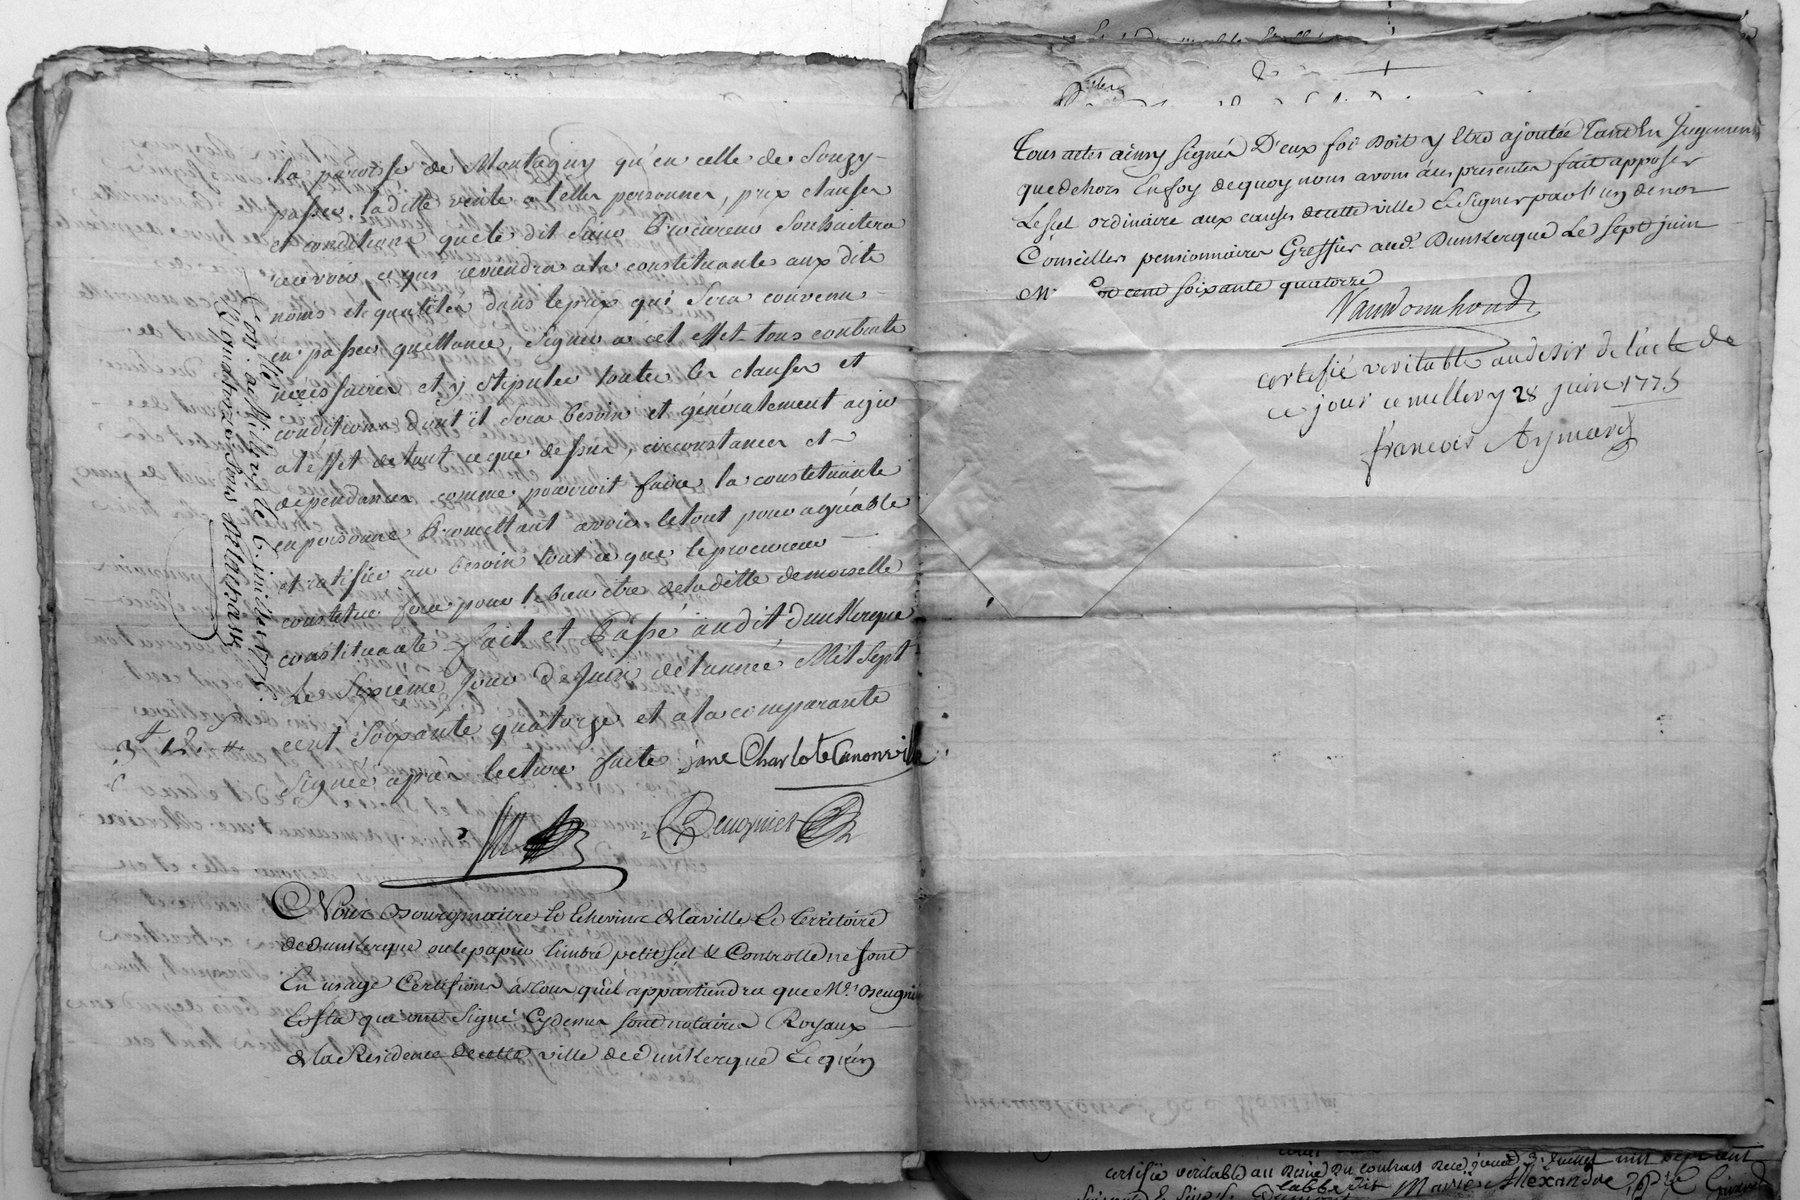 la paroisse de Montagny qu'en celle de Souzy
passer la ditte vente a telles personnes, prix clauses
et conditions que le dit Sieur Procureur Souhaitera
recevoir ce qui reviendra a la constituante aux dits
noms et qualités dans le prix qui Sera convenu
en passer quittance, Signer a cet effet tous contrats
necessaires et y stipuler toutes les clauses et
conditions dont il Sera besoin et généralement agir
a l'effet de tout ce que dessus, circonstances et
dependances comme pourroit faire la constituante
en personne Promettant avoir le tout pour agréable
et ratifier au besoin tout ce que le procureur
constitué fera pour le bien etre de la ditte demoiselle
constituante fait et Passé audit Dunkerque
Le Sixieme Jour de Juin de l'année Mil Sept
cent Soixante quatorze et a la comparante
Signé après lecture faite jane Charlote Canonville
Beugniet
Nous Bourgmaitre & Echevins de la ville & Territoire
de Dunkerque ou le papier timbré petit Scel & Controlle ne sont
En usage Certifions à tous qu'il appartiendra que Mrs Beugniet
& que ont Signé Cy dessus sont notaires Royaux
de la Residence de cette ville de Dunkerque & qu'en
Con. a Millery le
quatorze sous
3# 12
Tous actes ainsy signés D'eux foi doit y être ajoutée Tant En Jugement
que dehors En foy de quoy nous avons à ces présentes fait apposer
Le Scel ordinaire aux causes de cette ville & Signer par l'un de nos
Conseillers pensionnaires Greffiers aud. Dunkerque Le Sept juin
cent soixante quatorze
certifié veritable au desir de l'acte de
ce jour ce millery 28 juin 1775
françois Aymard
certifié veritable au
Marie Alexandre